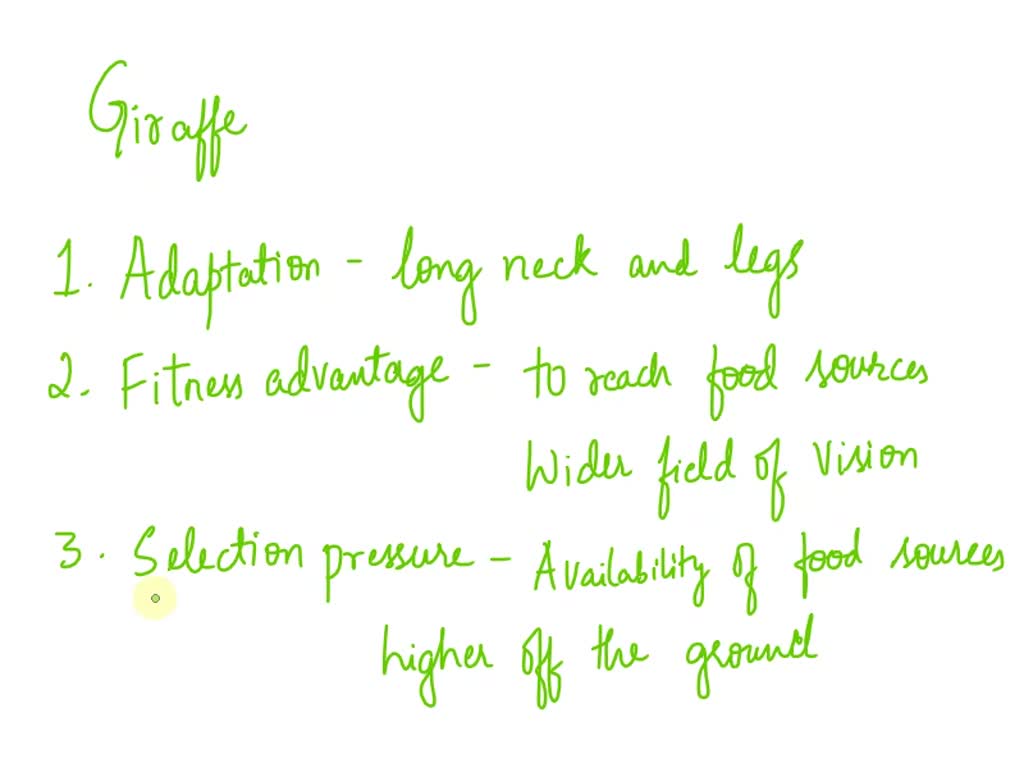 Giraffe
1. Adaptation - long neck and legs
2. Fitness advantage - to reach food sources
Wider field of vision
3. Selection pressure - Availability of food sources
higher off the ground